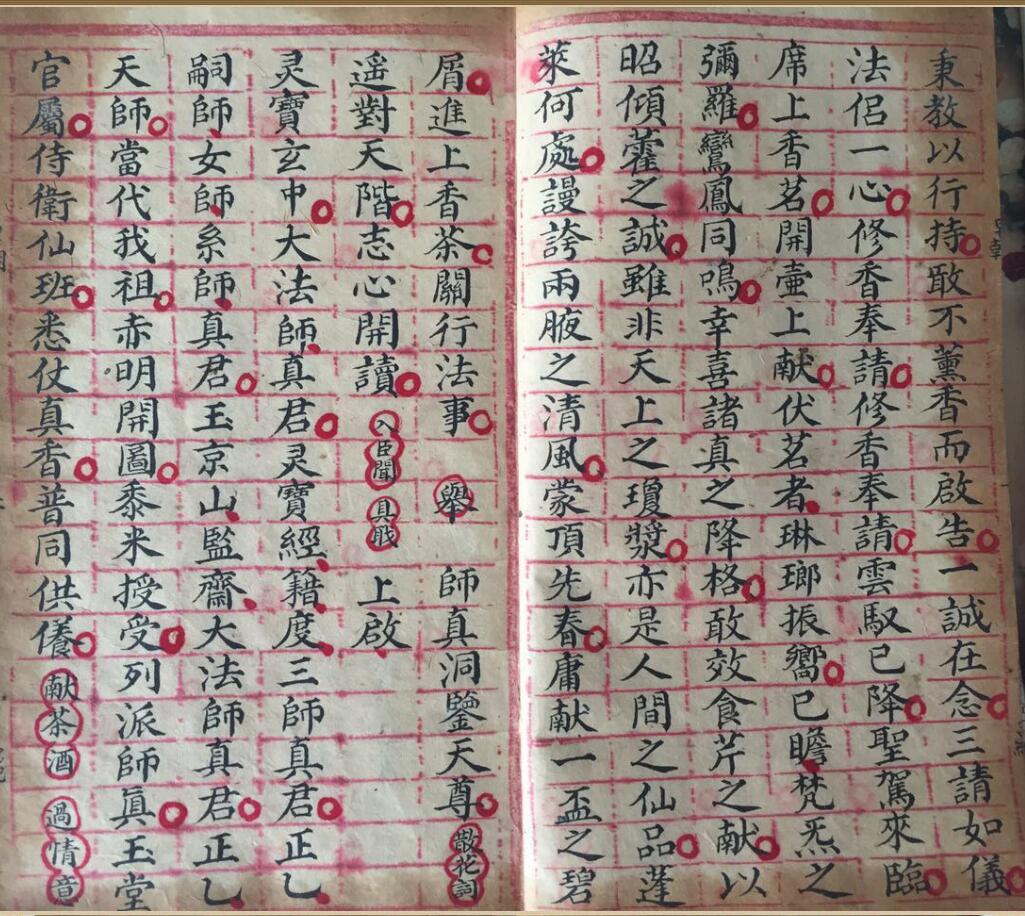 秉教以行持敢不薰香而啟告一誠在念三請如儀
法侶一心修香奉請修香奉請雲馭已降聖駕來臨
席上香茗開壷上献伏茗者琳瑯振嚮已瞻梵炁之
彌羅鸞鳳同鳴幸喜諸真之降格敢效食芹之献以
昭傾藿之誠雖非天上之瓊漿亦是人間之仙品蓬
萊何處謾誇兩腋之清風蒙頂先春庸献一盃之碧
屑進上香茶關行法事 舉 師真洞鑒天尊 散花詞
遥對天階志心開讀 臣聞 具戠 上啟
灵寶玄中大法師真君灵寶經籍度三師真君正乚
嗣師女師系師真君玉京山監齋大法師真君正乚
天師當代我祖赤明開圖黍米授受列派師眞玉堂
官屬侍衛仙班悉仗真香普同供養 献茶酒 過情音